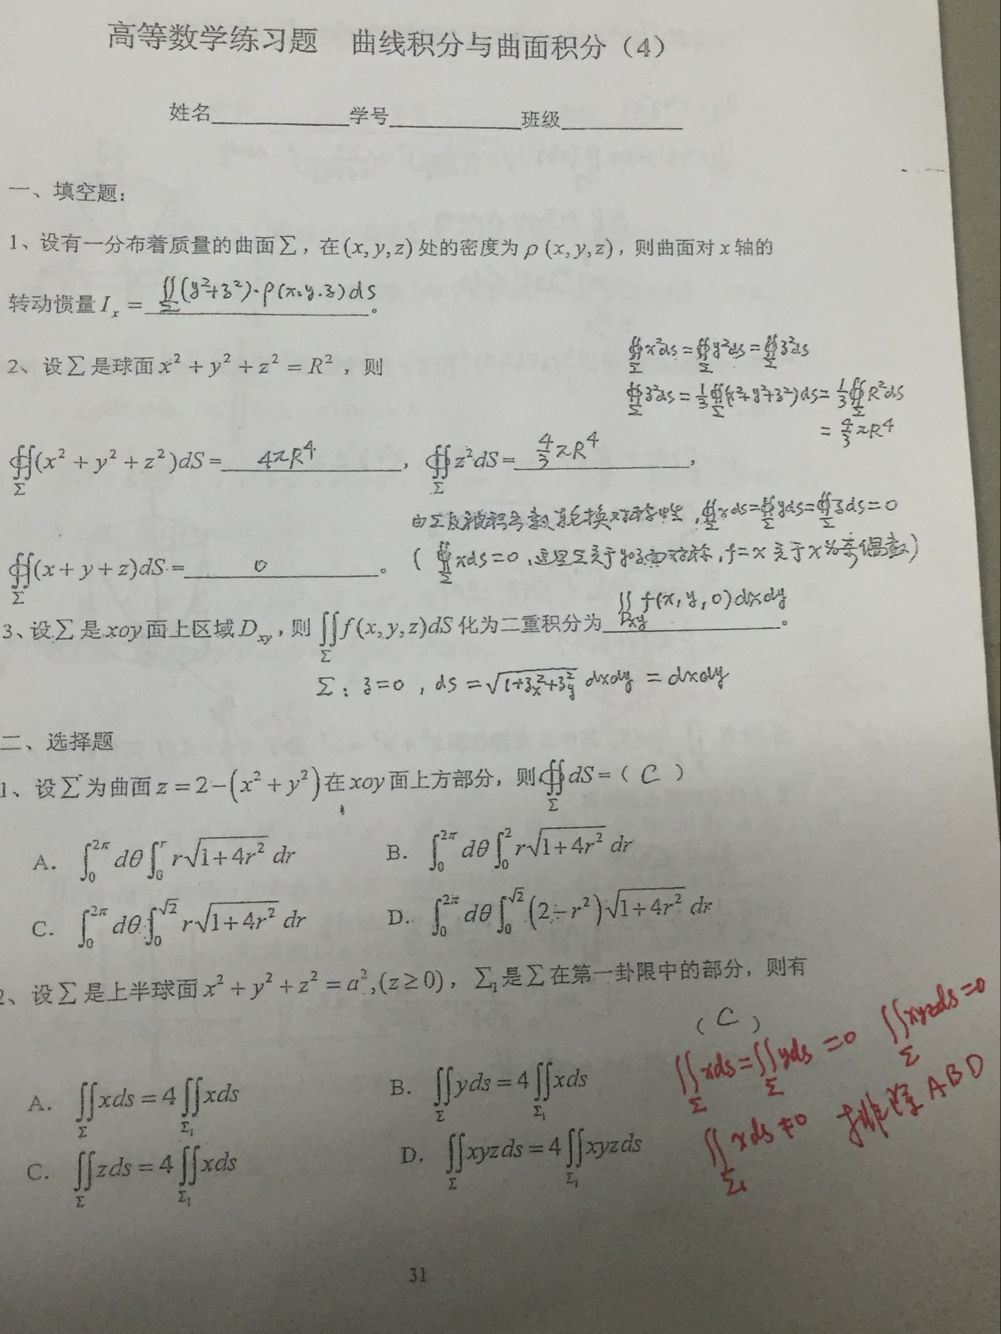 高等数学练习题 曲线积分与曲面积分（4）
姓名____________学号____________班级____________
一、填空题：
1、设有一分布着质量的曲面∑，在(x,y,z)处的密度为ρ(x,y,z)，则曲面对x轴的
转动惯量Iₓ=∬_Σ(y²+z²)·ρ(x,y,z)ds。
∯_Σ x²ds=∯_Σ y²ds=∯_Σ z²ds
2、设∑是球面x²+y²+z²=R²，则
∯_Σ z²ds=1/3∯_Σ(x²+y²+z²)ds=1/3∯_Σ R²ds
=4/3 πR⁴
∯_Σ(x²+y²+z²)dS=4πR⁴，∯_Σ z²dS=4/3 πR⁴，
由Σ及被积函数轮换对称性，∯_Σ xds=∯_Σ yds=∯_Σ zds=0
（∯_Σ xds=0，这里Σ关于yoz面对称，f=x关于x为奇函数）
∯_Σ(x+y+z)dS=0。
3、设∑是xoy面上区域D_xy，则∬_Σ f(x,y,z)dS化为二重积分为∬_Dxy f(x,y,0)dxdy。
Σ：z=0，ds=√(1+z_x²+z_y²) dxdy=dxdy
二、选择题
1、设∑为曲面z=2-(x²+y²)在xoy面上方部分，则∯_Σ dS=（ C ）
A. ∫₀^{2π}dθ∫₀^r r√(1+4r²) dr B. ∫₀^{2π}dθ∫₀² r√(1+4r²) dr
C. ∫₀^{2π}dθ∫₀^{√2} r√(1+4r²) dr D. ∫₀^{2π}dθ∫₀^{√2}(2-r²)√(1+4r²) dr
2、设∑是上半球面x²+y²+z²=a²,(z≥0)，∑₁是∑在第一卦限中的部分，则有
（ C ）
∬_Σ xds=∬_Σ yds=0 ∬_Σ xyzds=0
A. ∬_Σ xds=4∬_Σ₁ xds B. ∬_Σ yds=4∬_Σ₁ xds
∬_Σ₁ xds≠0 排除ABD
C. ∬_Σ zds=4∬_Σ₁ xds D. ∬_Σ xyzds=4∬_Σ₁ xyzds
31